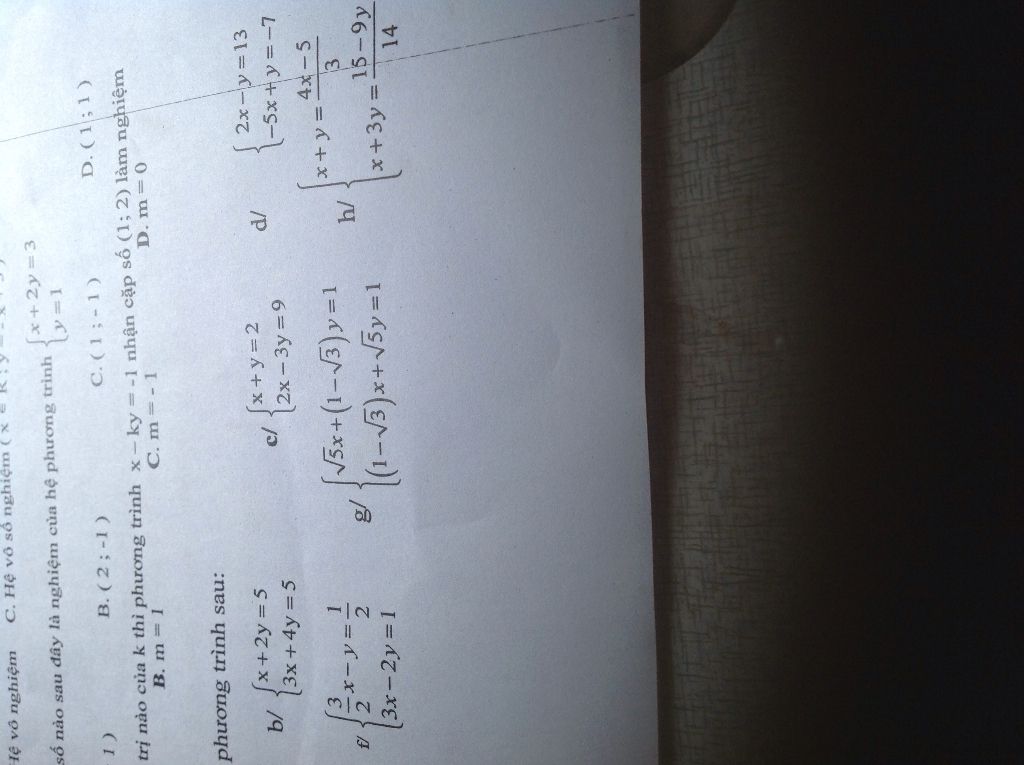 Hệ vô nghiệm C. Hệ vô số nghiệm ( x ∈ R ; y = - x + 3 )
số nào sau đây là nghiệm của hệ phương trình { x + 2y = 3
y = 1
1 ) B. ( 2 ; -1 ) C. ( 1 ; - 1 ) D. ( 1 ; 1 )
trị nào của k thì phương trình x – ky = -1 nhận cặp số (1; 2) làm nghiệm
B. m = 1 C. m = - 1 D. m = 0
phương trình sau:
b/ { x + 2y = 5
3x + 4y = 5
c/ { x + y = 2
2x − 3y = 9
d/ { 2x − y = 13
−5x + y = −7
f/ { 3/2 x − y = 1/2
3x − 2y = 1
g/ { √5x + (1−√3)y = 1
(1−√3)x + √5y = 1
h/ { x + y = (4x − 5)/3
x + 3y = (15 − 9y)/14